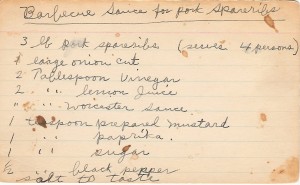 Barbecue Sauce for pork Spareribs
3 lb pork spareribs (serves 4 persons)
1 large onion cut
2 Tablespoon Vinegar
2 " lemon Juice
" " Worcester Sauce
1 teaspoon prepared mustard
1 " paprika.
1 " sugar
½ " black pepper
salt to taste